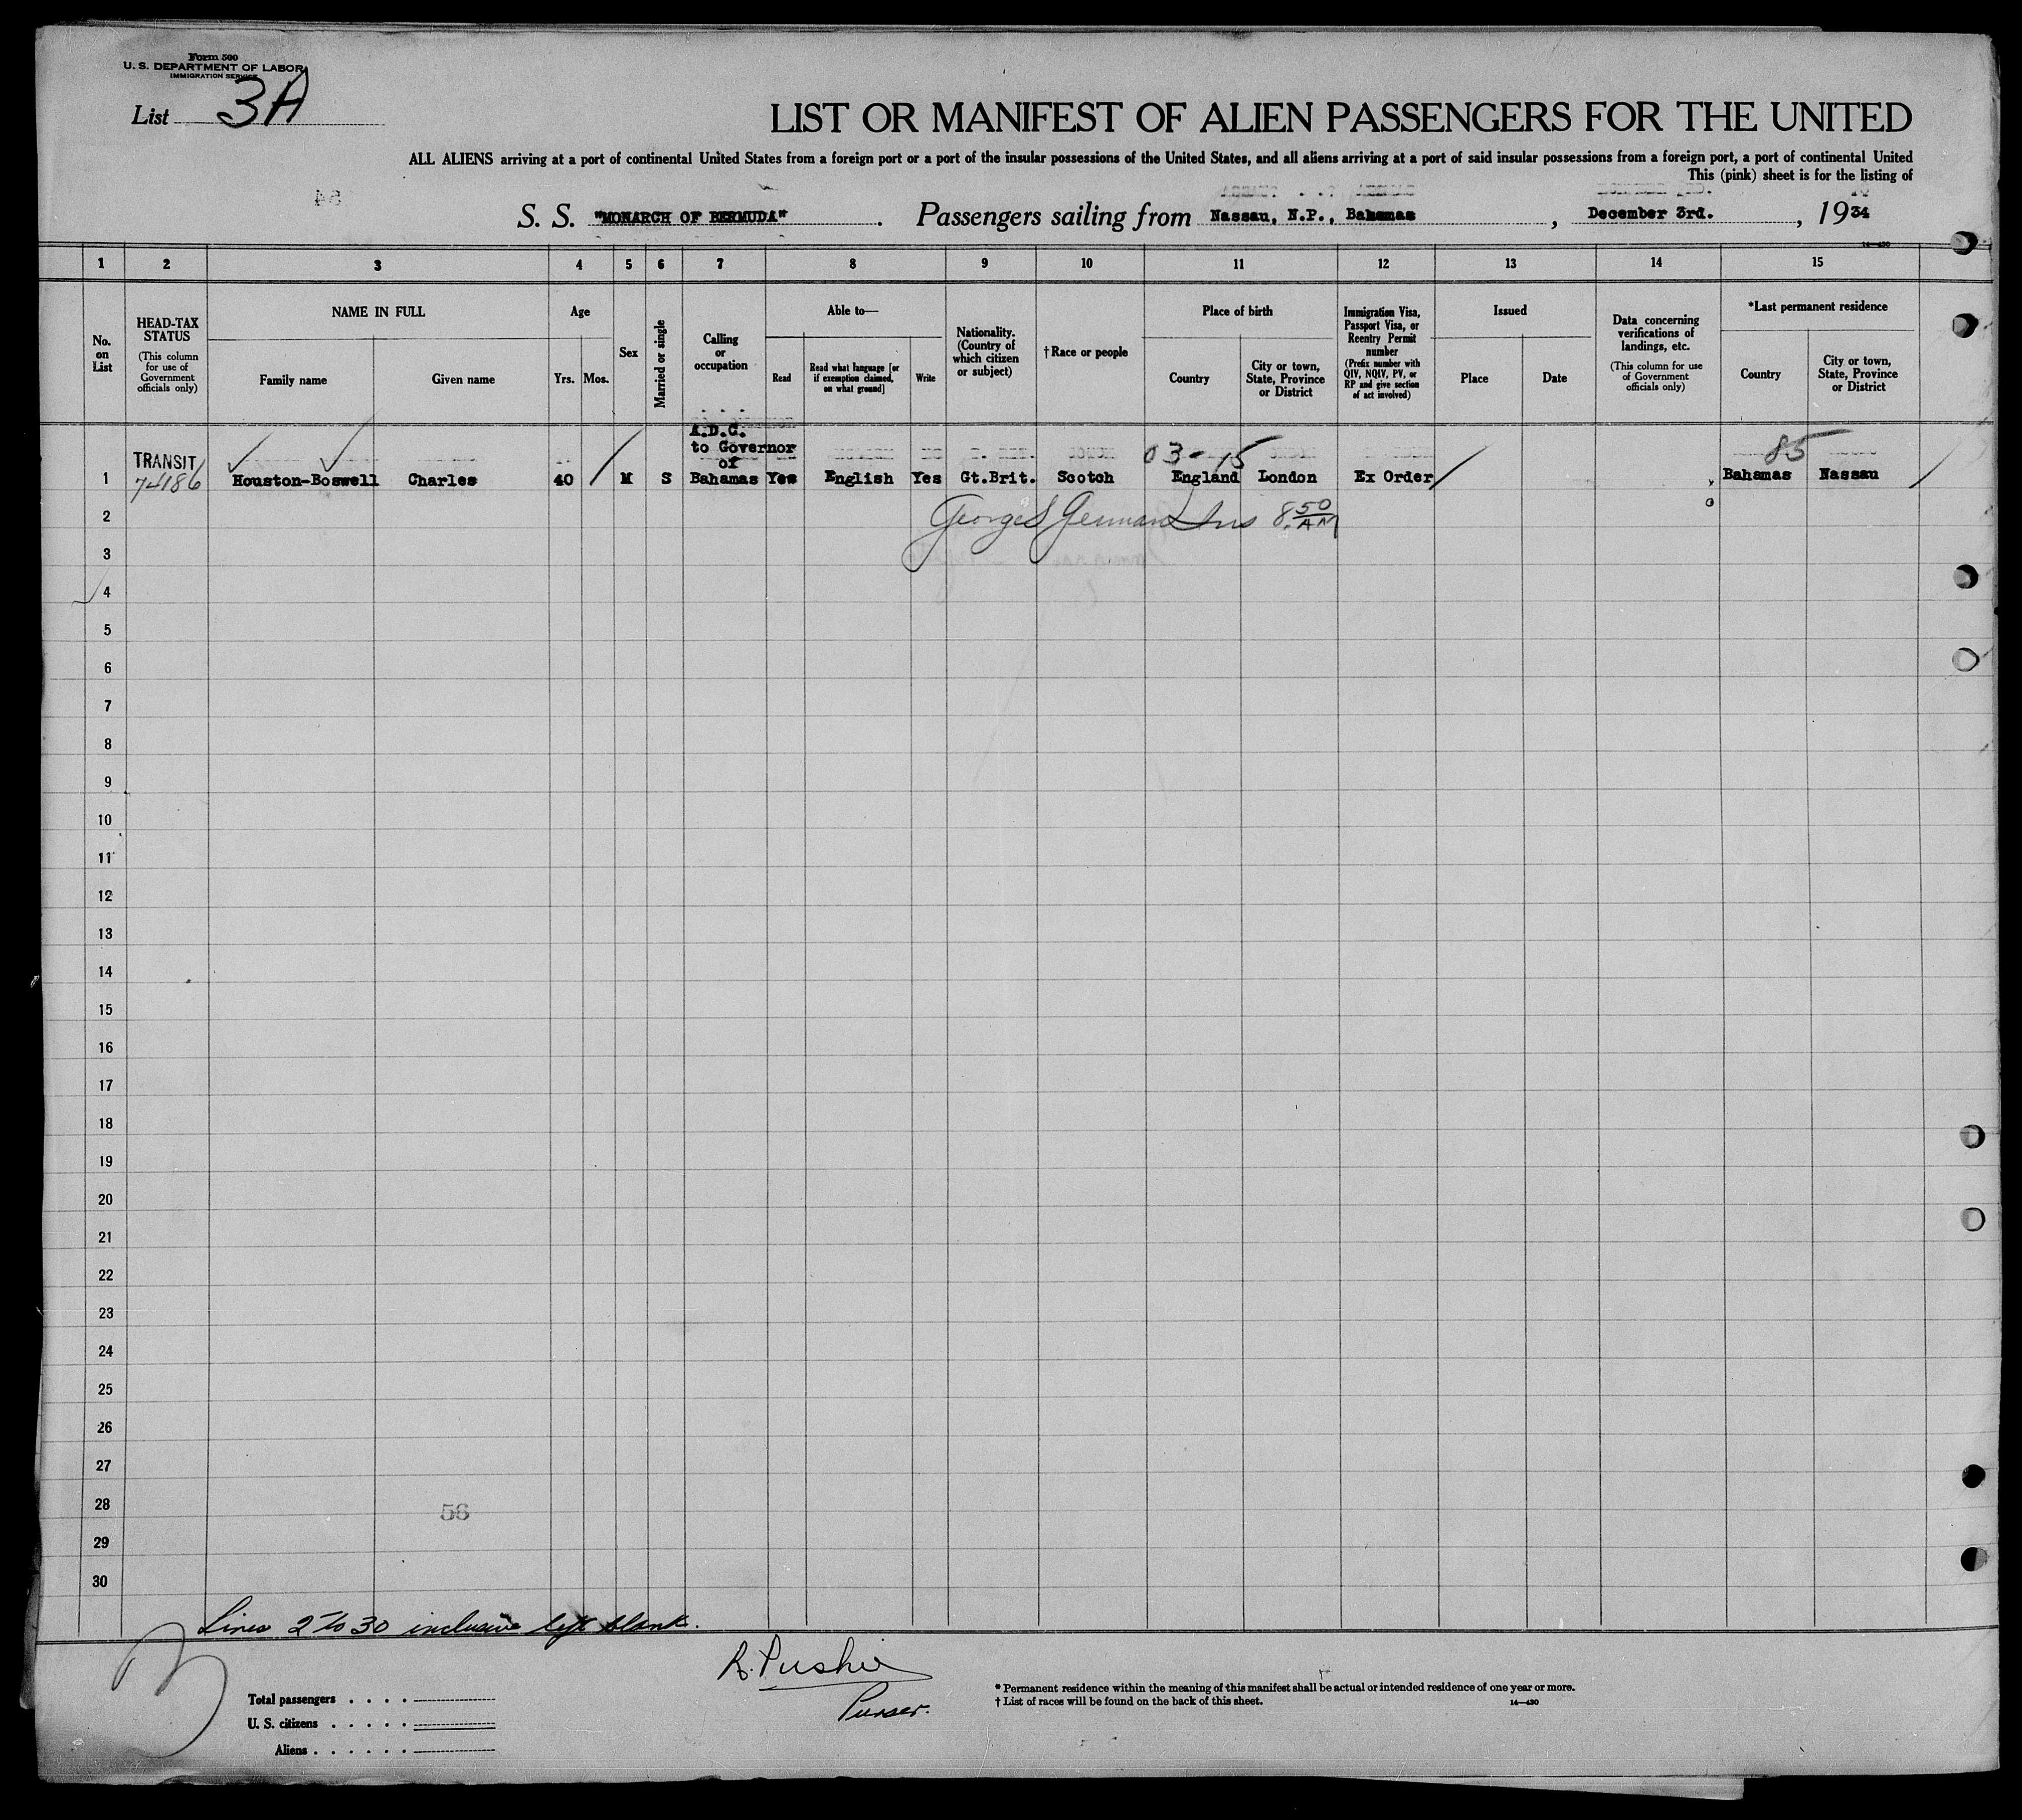 Form 500
U. S. DEPARTMENT OF LABOR
IMMIGRATION SERVICE
List 3A
LIST OR MANIFEST OF ALIEN PASSENGERS FOR THE UNITED
ALL ALIENS arriving at a port of continental United States from a foreign port or a port of the insular possessions of the United States, and all aliens arriving at a port of said insular possessions from a foreign port, a port of continental United
This (pink) sheet is for the listing of
S. S. "MONARCH OF BERMUDA". Passengers sailing from Nassau, N.P., Bahamas, December 3rd., 1934
14—430
1 2 3 4 5 6 7 8 9 10 11 12 13 14 15
No. on List
HEAD-TAX STATUS
(This column for use of Government officials only)
NAME IN FULL
Family name
Given name
Age
Yrs. Mos.
Sex
Married or single
Calling or occupation
Able to—
Read
Read what language [or if exemption claimed, on what ground]
Write
Nationality. (Country of which citizen or subject)
†Race or people
Place of birth
Country
City or town, State, Province or District
Immigration Visa, Passport Visa, or Reentry Permit number
(Prefix number with QIV, NQIV, PV, or RP and give section of act involved)
Issued
Place
Date
Data concerning verifications of landings, etc.
(This column for use of Government officials only)
*Last permanent residence
Country
City or town, State, Province or District
A.D.C.
to Governor
of
TRANSIT 03-15 85
1 74186 Houston-Boswell Charles 40 M S Bahamas Yes English Yes Gt.Brit. Scotch England London Ex Order Bahamas Nassau
2 George S German Ins 8.50 AM
3
4
5
6
7
8
9
10
11
12
13
14
15
16
17
18
19
20
21
22
23
24
25
26
27
28
56
29
30
Lines 2 to 30 inclusive left blank.
Purser.
Total passengers . . . .
U. S. citizens . . . . .
Aliens . . . . . .
* Permanent residence within the meaning of this manifest shall be actual or intended residence of one year or more.
† List of races will be found on the back of this sheet.
14—430